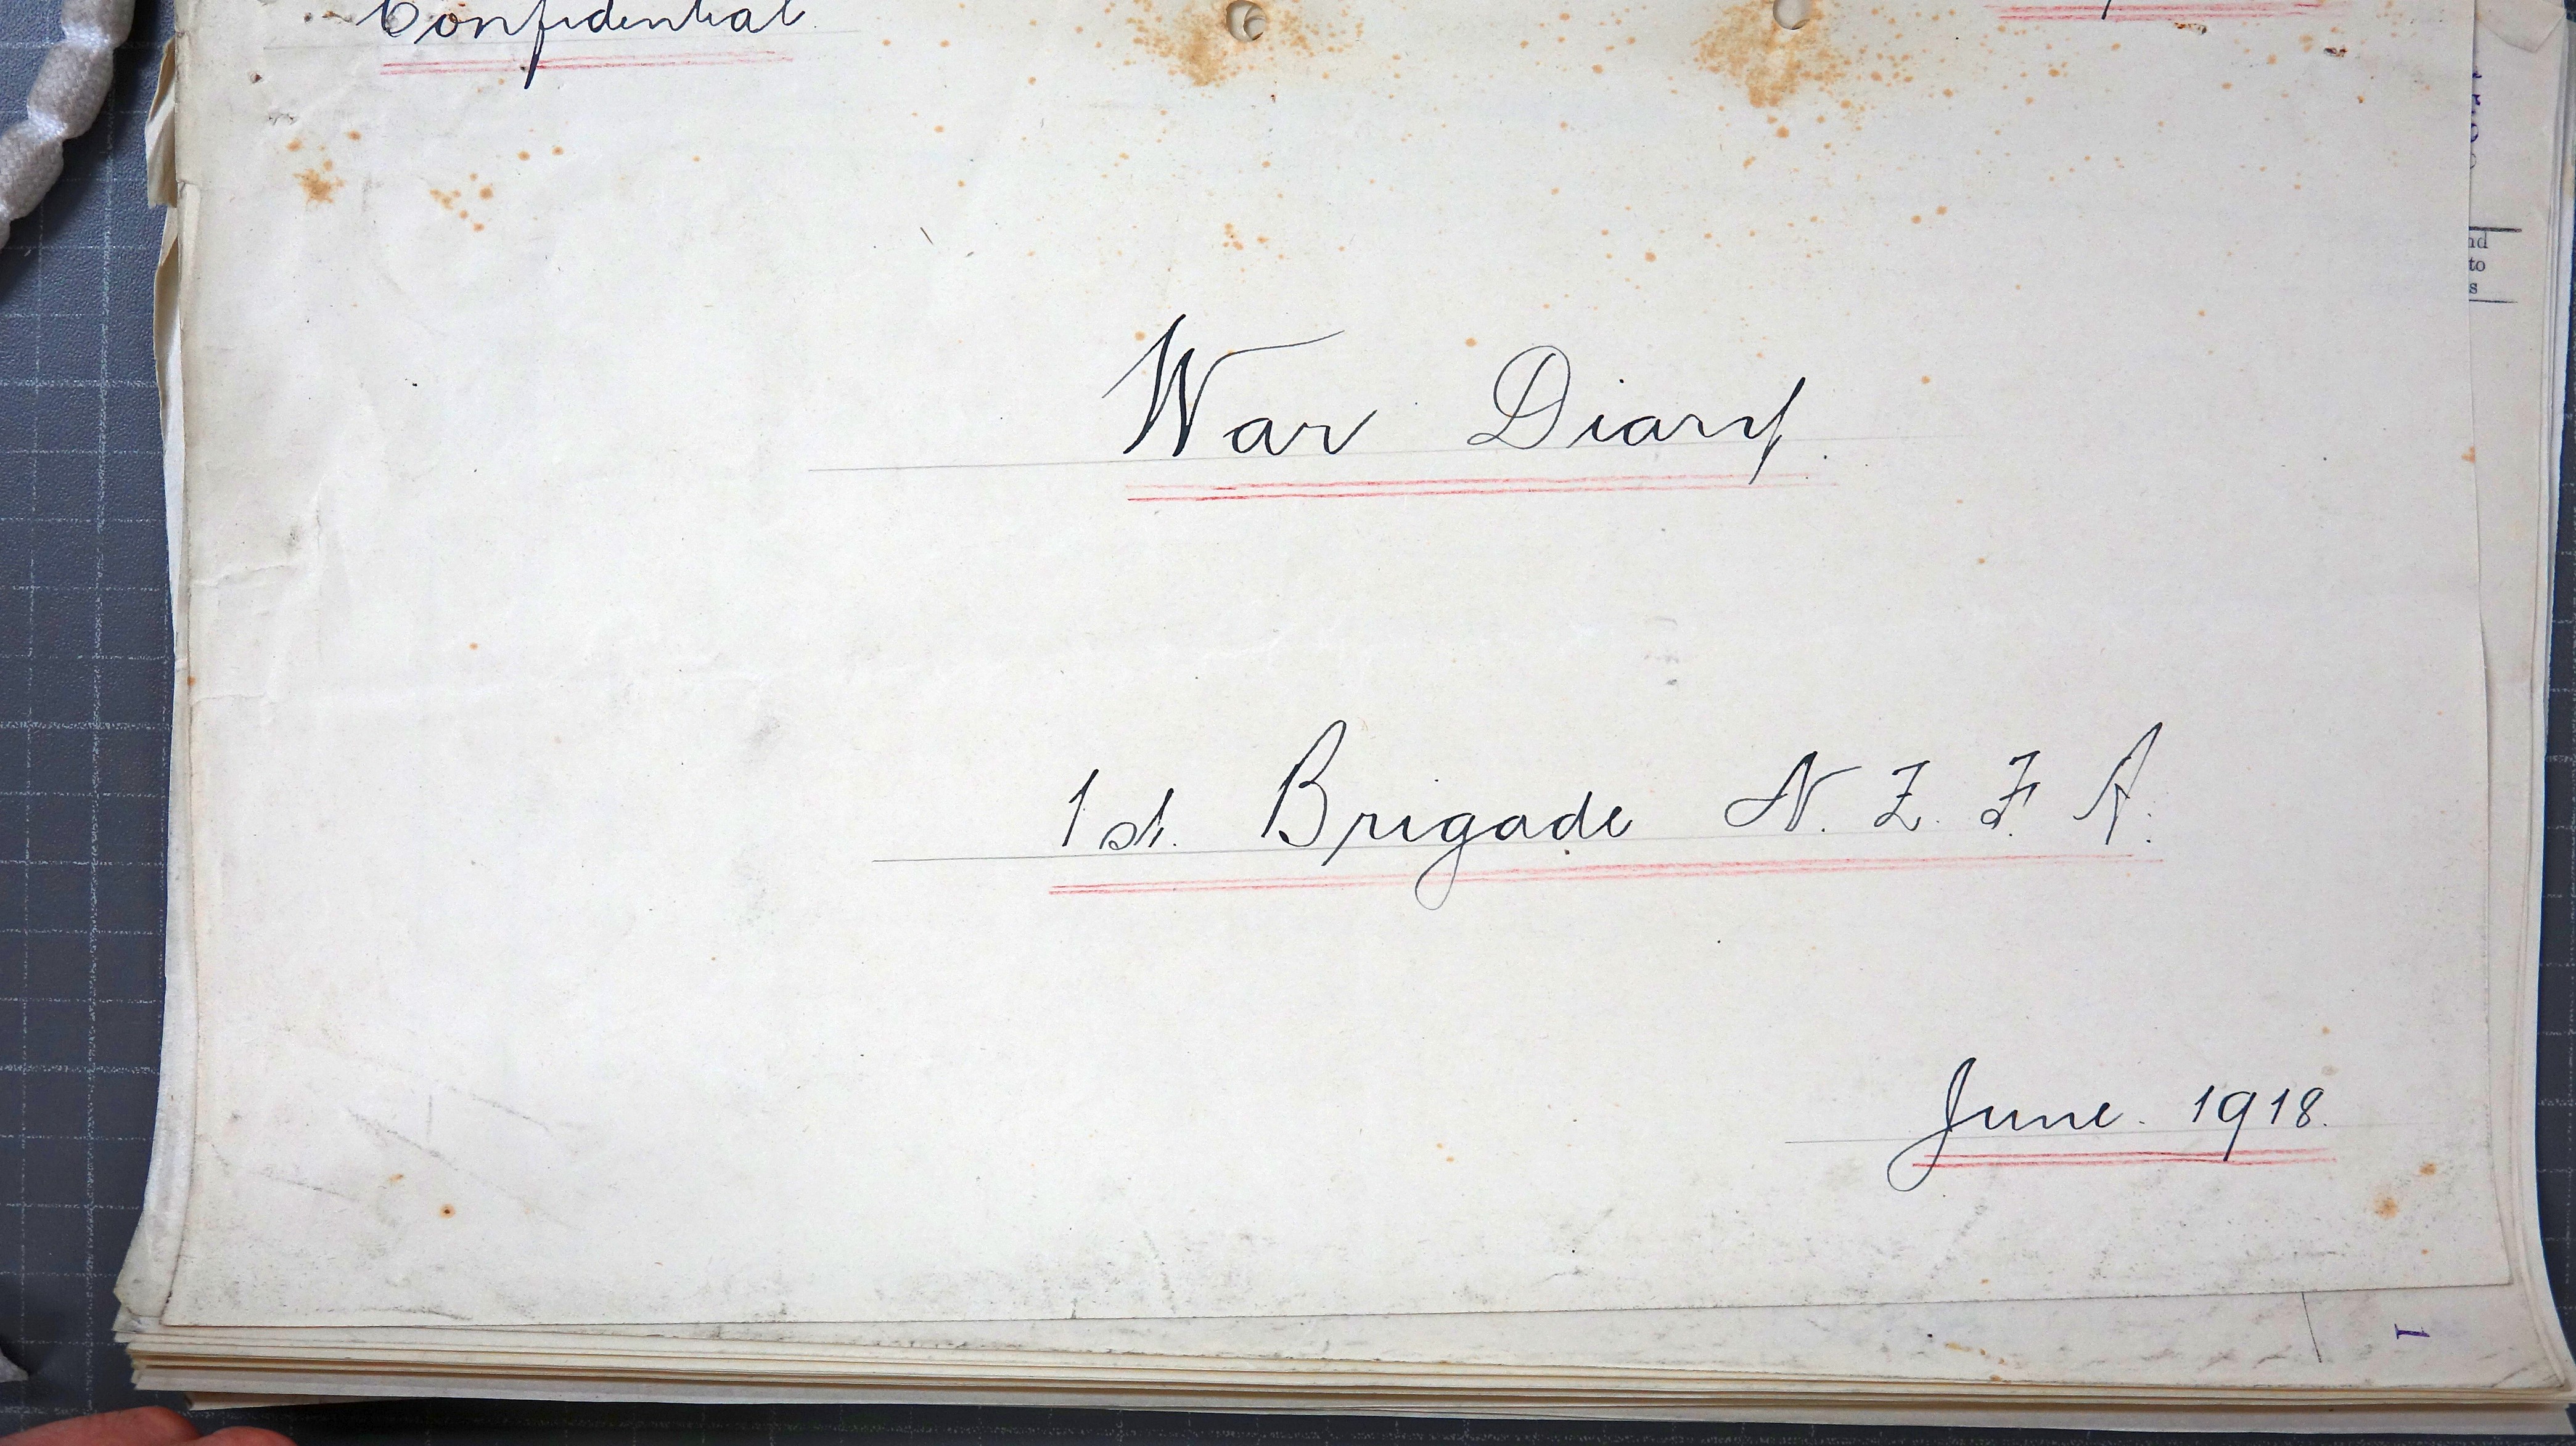 Confidential
War Diary.
1st. Brigade N. Z. F. A.
June. 1918.
nd
to
s
1